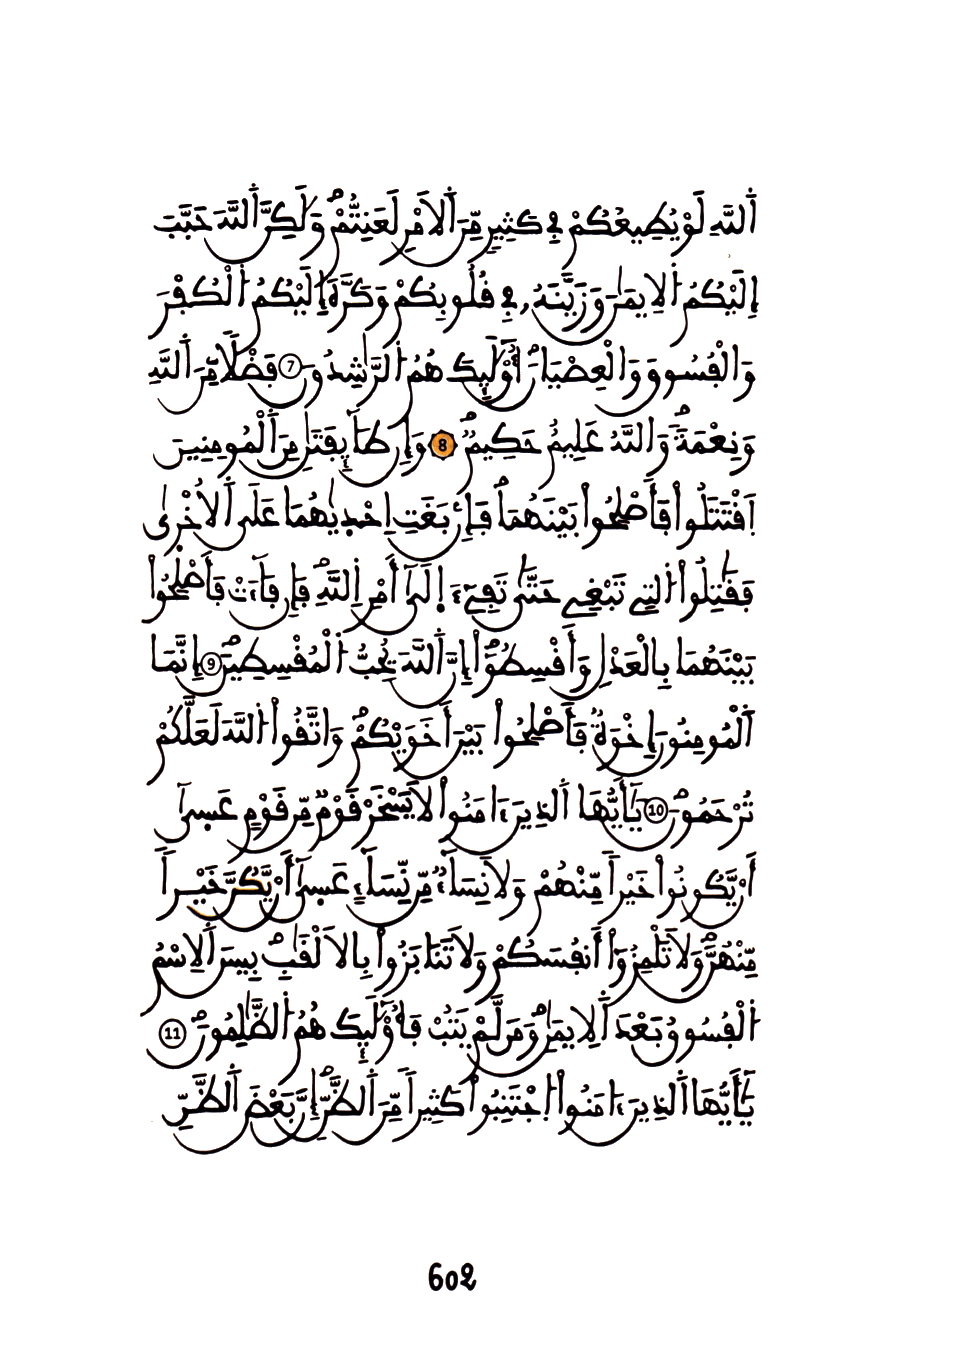 اَللَّهِ لَوْ يُطِيعُكُمْ فِے كَثِيرٖ مِّنَ اَلَامْرِ لَعَنِتُّمْۖ وَلَٰكِنَّ اَللَّهَ حَبَّبَ
إِلَيْكُمُ اُلِايمَٰنَ وَزَيَّنَهُۥ فِے قُلُوبِكُمْ وَكَرَّهَ إِلَيْكُمُ اُلْكُفْرَ
وَالْفُسُوقَ وَالْعِصْيَانَۖ أُوْلَٰٓئِكَ هُمُ اُلرَّٰشِدُونَ 7 فَضْلاٗ مِّنَ اَللَّهِ
وَنِعْمَةٗۖ وَاللَّهُ عَلِيمٌ حَكِيمٞۖ 8 وَإِن طَآئِفَتَٰنِ مِنَ اَلْمُومِنِينَ
اَ۪قْتَتَلُواْ فَأَصْلِحُواْ بَيْنَهُمَاۖ فَإِنۢ بَغَتِ اِحْد۪يٰهُمَا عَلَي اَلُاخْر۪ىٰ
فَقَٰتِلُواْ اُلتِے تَبْغِے حَتَّىٰ تَفِےٓءَ اِ۪لَىٰٓ أَمْرِ اِ۬للَّهِۖ فَإِن فَآءَتْ فَأَصْلِحُواْ
بَيْنَهُمَا بِالْعَدْلِ وَأَقْسِطُوٓاْۖ إِنَّ اَللَّهَ يُحِبُّ اُلْمُقْسِطِينَۖ 9 إِنَّمَا
اَلْمُومِنُونَ إِخْوَةٞۖ فَأَصْلِحُواْ بَيْنَ أَخَوَيْكُمْۖ وَاتَّقُواْ اُللَّهَ لَعَلَّكُمْ
تُرْحَمُونَۖ 10 يَٰٓأَيُّهَا اَلذِينَ ءَامَنُواْ لَا يَسْخَرْ قَوْمٞ مِّن قَوْمٍ عَس۪ىٰٓ
أَنْ يَّكُونُواْ خَيْراٗ مِّنْهُمْ وَلَا نِسَآءٞ مِّن نِّسَآءٍ عَس۪ىٰٓ أَنْ يَّكُنَّ خَيْراٗ
مِّنْهُنَّۖ وَلَا تَلْمِزُوٓاْ أَنفُسَكُمْ وَلَا تَنَابَزُواْ بِالَالْقَٰبِۖ بِيسَ اَلِاسْمُ
اُلْفُسُوقُ بَعْدَ اَلِايمَٰنِۖ وَمَن لَّمْ يَتُبْ فَأُوْلَٰٓئِكَ هُمُ اُلظَّٰلِمُونَۖ 11
يَٰٓأَيُّهَا اَلذِينَ ءَامَنُواْ اُجْتَنِبُواْ كَثِيراٗ مِّنَ اَلظَّنِّۖ إِنَّ بَعْضَ اَلظَّنِّ
602